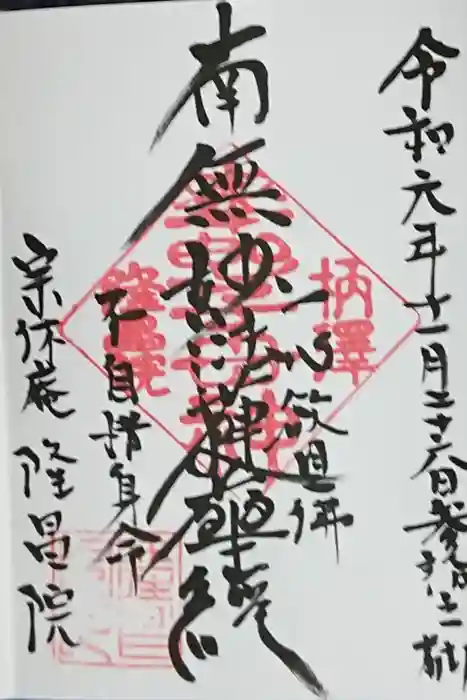 令和元年十一月二十六日参詣之
一心欲見佛
南無妙法蓮華經
不自惜身命
宗休庵 隆昌院
柄澤
隆昌院